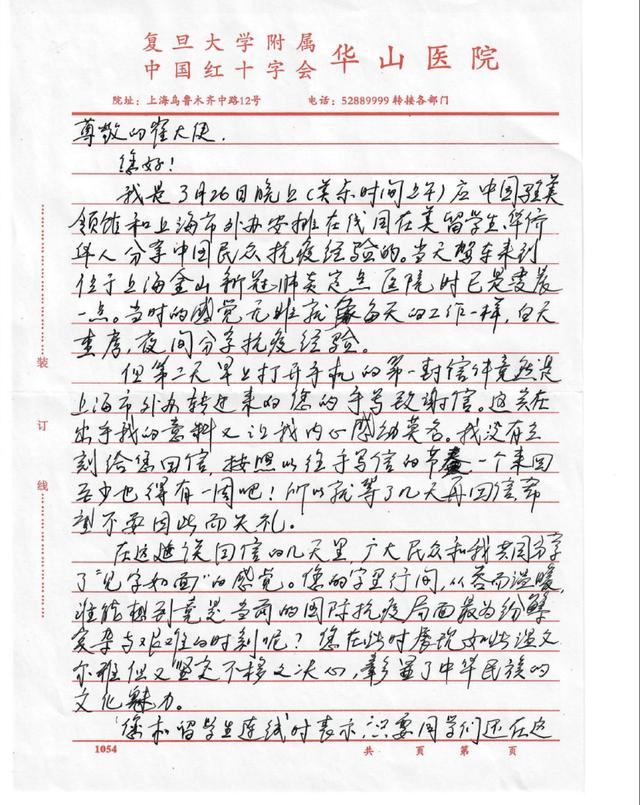 复旦大学附属
中国红十字会 华山医院
院址：上海乌鲁木齐中路12号 电话：52889999 转接各部门
尊敬的崔大使.
您好！
我是3月26日晚上(美东时间上午)应中国驻美
领馆和上海市外办安排在线回在美留学生、华侨
华人分享中国民众抗疫经验的。当天驾车来到
位于上海金山新冠肺炎定点医院时已是凌晨
一点。当时的感觉无非就像每天的工作一样，白天
查房，夜间分享抗疫经验。
但第二天早上打开手机的第一封信件竟然是
上海市外办转过来的您的手写致谢信。这实在
出乎我的意料又让我内心感动莫名。我没有立
刻给您回信，按照以往手写信的节奏一个来回
至少也得有一周吧！所以就等了几天再回信，希
望不要因此而失礼。
在这延误回信的几天里，广大民众和我共同分享
了“见字如面”的感觉。您的字里行间，从容而温暖，
谁能想到竟是当前的国际抗疫局面最为纷繁
复杂与艰难的时刻呢？您在此时展现如此温文
尔雅但又坚定不移之决心，彰显了中华民族的
文化魅力。
您和“留学生连线”时表示，只要同学们还在这
装
订
线
1054 共 页 第 页